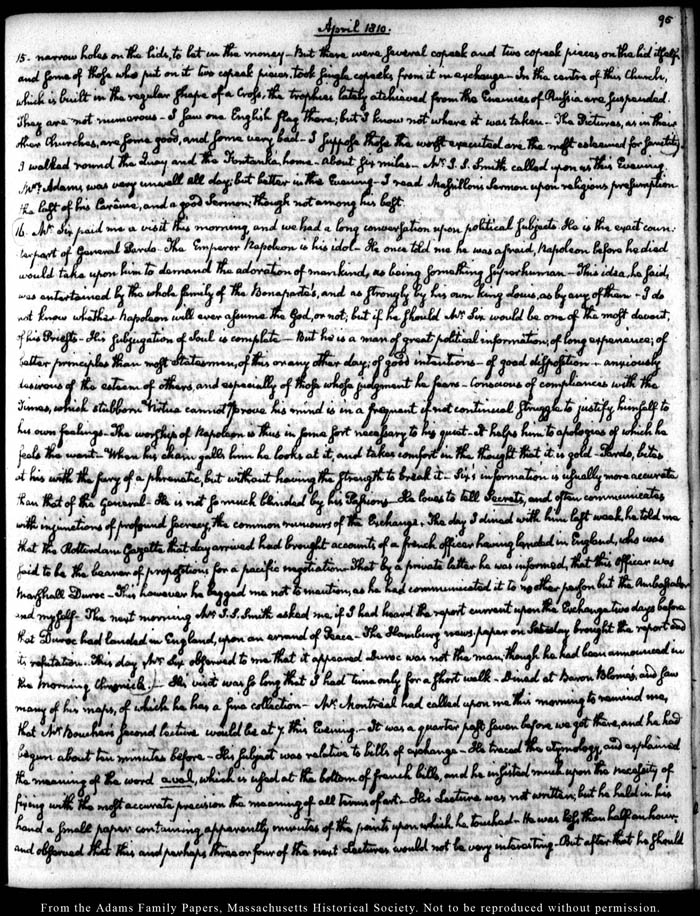 April 1810.
95
15. narrow holes on the lids, to let in the money - But there were several copeek and two copeek pieces on the lid itself,
and some of those who put on it two copeek pieces, took single copecks from it in exchange - In the centre of this Church,
which is built in the regular shape of a Cross, the trophies lately atchieved from the Enemies of Russia are suspended.
They are not numerous - I saw one English flag there; but I know not where it was taken - The Pictures, as in their
other Churches, are some good, and some very bad - I suppose those the worst executed are the most esteemed for Sanctity.
I walked round the Quay and the Fontanka, home - about six miles - Mr. J. S. Smith called upon us this Evening.
Mrs. Adams was very unwell all day; but better in the Evening - I read Massillons Sermon upon religious presumption
the last of his Carême, and a good Sermon; though not among his best.
16. Mr. Six paid me a visit this morning, and we had a long conversation upon political subjects. He is the exact coun-
terpart of General Pardo - The Emperor Napoleon is his idol - He once told me he was afraid, Napoleon before he died
would take upon him to demand the adoration of mankind, as being something superhuman - This idea, he said,
was entertained by the whole family of the Bonaparte's, and as strongly by his own king Louis, as by any of them - I do
not know whether Napoleon will ever assume the God, or not; but if he should Mr. Six would be one of the most devout,
of his Priests - His subjugation of Soul is complete - But he is a man of great political information; of long experience; of
better principles than most Statesmen, of this or any other day; of good intentions - of good disposition - anxiously
desirous of the esteem of others, and especially of those whose judgment he fears - Conscious of compliances with the
Times, which stubborn Virtue cannot approve his mind is in a frequent if not continual struggle to justify himself to
his own feelings - The worship of Napoleon is thus in some sort necessary to his quiet - It helps him to apologies of which he
feels the want - When his chain galls him he looks at it, and takes comfort in the thought that it is gold - Pardo, bites
at his with the fury of a phrenetic, but without having the strength to break it - Six's information is usually more accurate
than that of the General - He is not so much blinded by his Passions - He loves to tell Secrets, and often communicates
with injunctions of profound secrecy, the common rumours of the Exchange. The day I dined with him last week, he told me
that the Rotterdam Gazette that day arrived had brought accounts of a french officer having landed in England, who was
said to be the bearer of propositions for a pacific negotiation - That by a private letter he was informed, that this officer was
Marshall Duroc - This however he begged me not to mention, as he had communicated it to no other person but the Ambassador
and myself - The next morning Mr. J. S. Smith asked me, if I had heard the report current upon the Exchange two days before
that Duroc had landed in England, upon an errand of Peace - The Hamburg news-paper on Saturday brought the report and
its refutation. This day Mr. Six observed to me that it appeared Duroc was not the man, though he had been announced in
the Morning Chronicle. - His visit was so long that I had time only for a short walk - Dined at Baron Blome's, and saw
many of his maps, of which he has a fine collection - Mr. Montréal had called upon me this morning to remind me,
that Mr. Bouchers second Lecture would be at 7. this Evening. - It was a quarter past seven before we got there, and he had
begun about ten minutes before - His subject was relative to bills of exchange - He traced the etymology, and explained
the meaning of the word aval, which is used at the bottom of french bills, and he insisted much upon the necessity of
fixing with the most accurate precision the meaning of all terms of art - His Lecture was not written, but he held in his
hand a small paper containing apparently minutes of the points upon which he touched - He was less than half an hour;
and observed that this and perhaps three or four of the next Lectures would not be very interesting - But after that he should
From the Adams Family Papers, Massachusetts Historical Society. Not to be reproduced without permission.